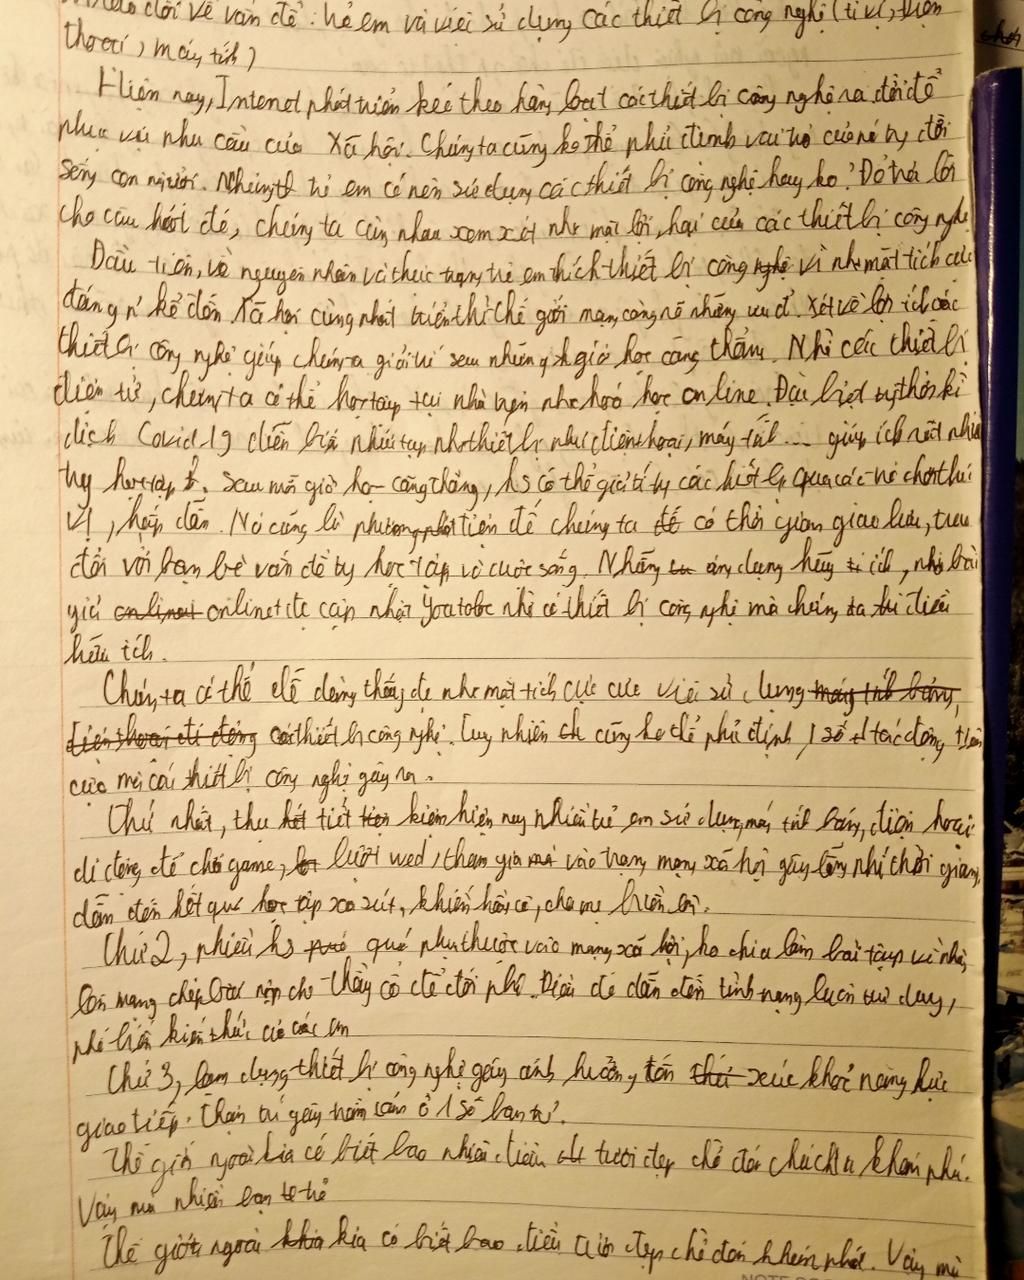 dõi về vấn đề: trẻ em và việc sử dụng các thiết bị công nghệ (ti vi, điện
thoại, máy tính)
Hiện nay, Internet phát triển kéo theo hàng loạt các thiết bị công nghệ ra đời để
phục vụ nhu cầu của Xã hội. Chúng ta cũng ko thể phủ định vai trò của nó trg đời
sống con người. Nhưng trẻ em có nên sử dụng các thiết bị công nghệ hay ko? Để trả lời
cho câu hỏi đó, chúng ta cùng nhau xem xét nhg mặt lợi, hại của các thiết bị công nghệ
Đầu tiên, về nguyên nhân và thực trạng, trẻ em thích thiết bị công nghệ vì nhg mặt tích cực
đáng kể đến. Xã hội càng phát triển thì thế giới mạng càng rõ những ưu đ. Xét về lợi ích các
thiết bị công nghệ giúp chúng ta giải trí sau những giờ học căng thẳng. Nhờ các thiết bị
điện tử, chúng ta có thể học tập tại nhà nhg khoá học online. Đặc biệt trg thời kì
dịch Covid 19 diễn biến nhg thiết bị như điện thoại, máy tính.... giúp ích rất nhiều
trg học tập. Sau mỗi giờ học căng thẳng, hs có thể giải trí bg các thiết bị qua các trò chơi thú
vị, hấp dẫn. Nó cũng là phương tiện để chúng ta có thời gian giao lưu, trao
đổi với bạn bè vấn đề trg học tập và cuộc sống. Những ứng dụng hữu ích, nhg bài
giả online đc cập nhật Youtobe nhờ có thiết bị công nghệ mà chúng ta điều
hữu ích.
Chúng ta có thể dễ dàng thấy đc nhg mặt tích cực của việc sử dụng máy tính bảng,
điện thoại di động các thiết bị công nghệ. Tuy nhiên cũng ko thể phủ định 1 số tác động
của mà các thiết bị công nghệ gây ra.
Thứ nhất, thu kiếm hiện nay nhiều trẻ em sử dụng máy tính bảng, điện thoại
di động để chơi game, lướt wed, tham gia vào trang mạng xã hội gây lãng phí thời gian,
dẫn đến kết quả học tập xa sút, khiến thầy cô, cha mẹ buồn
Thứ 2, nhiều hs quá phụ thuộc vào mạng xã hội, họ chưa làm bài tập về nhà,
lên mạng chép bài nộp cho thầy cô để đối phó. Điều đó dẫn đến tình trạng lười tư duy,
kiến thức của các em
Thứ 3, lạm dụng thiết bị công nghệ gây ảnh hưởng đến sức khoẻ năng lực
giao tiếp. Thậm trí gây trầm cảm ở 1 số bạn trẻ.
Thế giới ngoài kia có biết bao nhiêu điều tươi đẹp chờ đón khám phá.
Vậy mà nhiều bạn trẻ
Thế giới ngoài kia có biết bao điều tươi đẹp chờ đón khám phá. Vậy mà